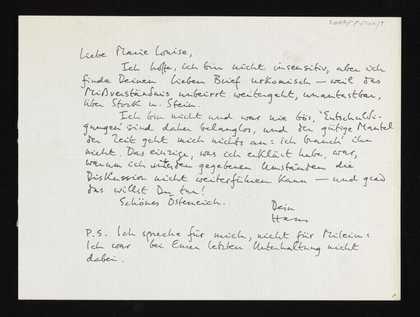 Liebe Marie Louise,
Ich hoffe, ich bin nicht insensitiv, aber ich
finde Deinen lieben Brief urkomisch — weil das
Mißverständnis unbeirrt weitergeht, unantastbar,
über Stock u. Stein.
Ich bin nicht und war nie bös, "Entschuldi-
gungen sind daher belanglos, und der gütige Mantel
der Zeit geht mich nichts an: ich brauch' ihn
nicht. Das einzige, was ich erklärt habe, war,
warum ich unter den gegebenen Umständen die
Diskussion nicht weiterführen kann — und grad
das willst Du tun!
Schönes Österreich.
Dein
Hans
P.S. Ich spreche für mich, nicht für Milein:
Ich war bei Euren letzten Unterhaltung nicht
dabei.